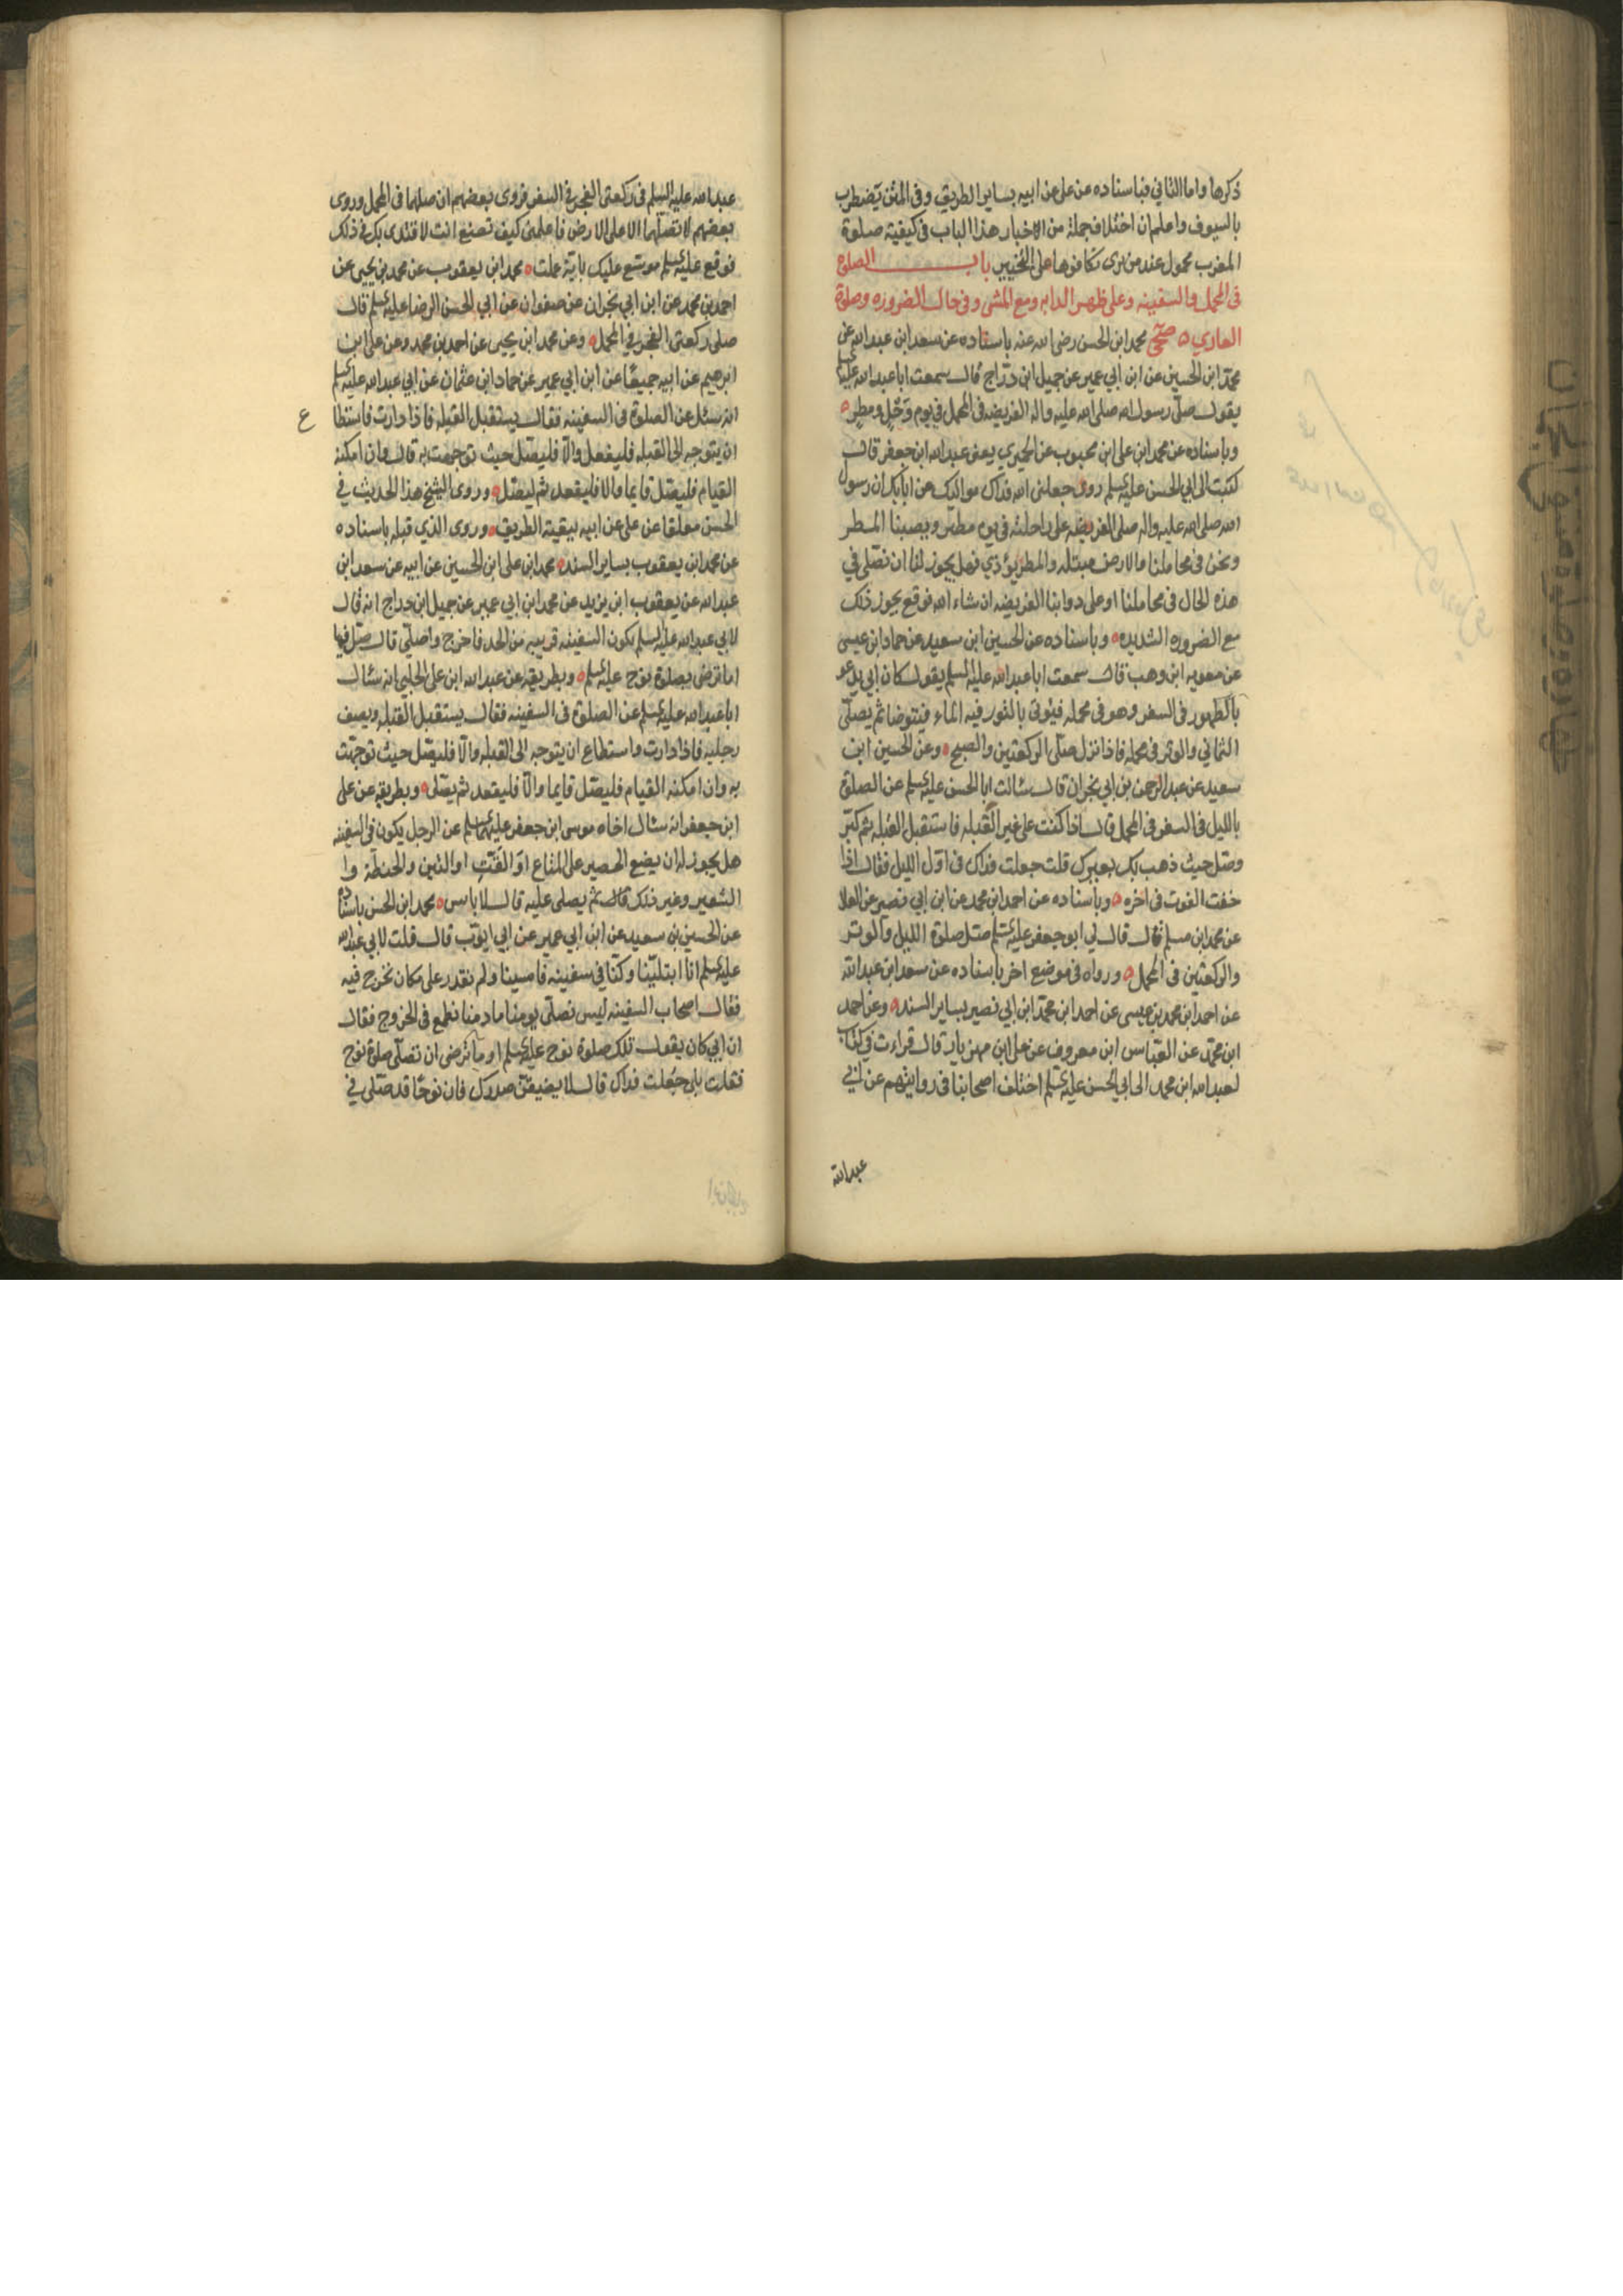 ذكرها واما الثاني فباسناده عن على عن ابيه بساير الطريق وفي المتن يضطرب
بالسيوف واعلم ان اختلاف جملة من الاخبار هذا الباب في كيفية صلوة
المغرب محمول عند من يرى تكافوها على التخيير باب الصلوة
في المحمل والسفينه وعلى ظهر الدابه ومع المشى وفي حال الضروره وصلوة
العاري صحى محمد ابن الحسن رضى الله عنه باسناده عن سعد ابن عبد الله عن
محمد ابن الحسين عن ابن ابي عمير عن جميل ابن دراج قال سمعت ابا عبد الله عليه السلم
يقول صلى رسول الله صلى الله عليه واله الفريضه في المحمل في يوم وحل ومطر
وباسناده عن محمد ابن على ابن محبوب عن الحميري يعنى عبد الله ابن جعفر قال
كتبت الى ابي الحسن عليه السلم روى جعلنى الله فداك مواليك عن ابائك ان رسول
الله صلى الله عليه واله صلى الفريضه على راحلته في يوم مطير ويصيبنا المطر
ونحن في محاملنا والارض مبتله والمطر يؤذي فهل يجوز لنا ان نصلى في
هذه الحال في محاملنا او على دوابنا الفريضه ان شاء الله فوقع يجوز ذلك
مع الضروره الشديده وباسناده عن الحسين ابن سعيد عن حماد ابن عيسى
عن معويه ابن وهب قال سمعت ابا عبد الله عليه السلم يقول كان ابي يدعو
بالطهور في السفر وهو في محمله فيؤتى بالتور فيه الماء فيتوضا ثم يصلى
الثماني والوتر في محمله فاذا نزل صلى الركعتين والصبح وعن الحسين ابن
سعيد عن عبد الرحمن بن ابي نجران قال سئالت ابا الحسن عليه السلم عن الصلوة
بالليل في السفر في المحمل قال اذا كنت على غير القبله فاستقبل القبله ثم كبر
وصل حيث ذهب بك بعيرك قلت جعلت فداك في اول الليل فقال اذا
خفت الفوت في اخره وباسناده عن احمد ابن محمد عن ابن ابي نصر عن العلا
عن محمد ابن مسلم قال قال لي ابو جعفر عليه السلم صل صلوة الليل والوتر
والركعتين في المحمل ورواه في موضع اخر باسناده عن سعد ابن عبد الله
عن احمد ابن محمد بن عيسى عن احمد ابن محمد ابن ابي نصير بساير السند وعن احمد
ابن محمد عن العباس ابن معروف عن على ابن مهزيار قال قراءت في كتاب
لعبد الله ابن محمد الى ابي الحسن عليه السلم اختلف اصحابنا في روايتهم عن ابي
عبد الله
عبد الله عليه السلم في ركعتى الفجر في السفر فروى بعضهم ان صلهما في المحمل وروى
بعضهم لا تصلهما الا على الارض فاعلمنى كيف تصنع انت لاقتدى بك في ذلك
فوقع عليه السلم موسع عليك باية عملت محمد ابن يعقوب عن محمد بن يحيى عن
احمد بن محمد عن ابن ابي نجران عن صفوان عن ابي الحسن الرضا عليه السلم قال
صلى ركعتى الفجر في المحمل وعن محمد ابن يحيى عن احمد بن محمد وعن على ابن
ابرهيم عن ابيه جميعا عن ابن ابي عمير عن حماد ابن عثمان عن ابي عبد الله عليه السلم
انه سئل عن الصلوة في السفينه فقال يستقبل القبله فاذا دارت فاستطا
ع
ان يتوجه الى القبله فليفعل والا فليصل حيث توجهت به قال وان امكنه
القيام فليصل قايما والا فليقعد ثم ليصل وروى الشيخ هذا الحديث في
الحسن معلقا عن على عن ابيه ببقية الطريق وروى الذي قبله باسناده
عن محمد ابن يعقوب بساير السند محمد ابن على ابن الحسين عن ابيه عن سعد ابن
عبد الله عن يعقوب ابن يزيد عن محمد ابن ابي عمير عن جميل ابن دراج انه قال
لابي عبد الله عليه السلم تكون السفينه قريبه من الجد فاخرج واصلى قال صل فيها
اما ترضى بصلوة نوح عليه السلم وبطريقه عن عبد الله ابن على الحلبي انه سئال
ابا عبد الله عليه السلم عن الصلوة في السفينه فقال يستقبل القبله ويصف
رجليه فاذا دارت واستطاع ان يتوجه الى القبله والا فليصل حيث توجهت
به وان امكنه القيام فليصل قايما والا فليقعد ثم يصلى وبطريقه عن على
ابن جعفر انه سئال اخاه موسى ابن جعفر عليهما السلم عن الرجل يكون في السفينه
هل يجوز له ان يضع الحصير على المتاع او القت او التبن والحنطة وا
الشعير وغير ذلك قال ثم يصلى عليه قال لا باس محمد ابن الحسن باسناده
عن الحسين بن سعيد عن ابن ابي عمير عن ابي ايوب قال قلت لابي عبد الله
عليه السلم انا ابتلينا وكنا في سفينه فامسينا ولم نقدر على مكان نخرج فيه
فقال اصحاب السفينه ليس نصلى يومنا ما دمنا نطمع في الخروج فقال
ان ابي كان يقول تلك صلوة نوح عليه السلم او ما ترضى ان تصلى صلوة نوح
فقلت بلى جعلت فداك قال لا يضيقن صدرك فان نوحا قد صلى في